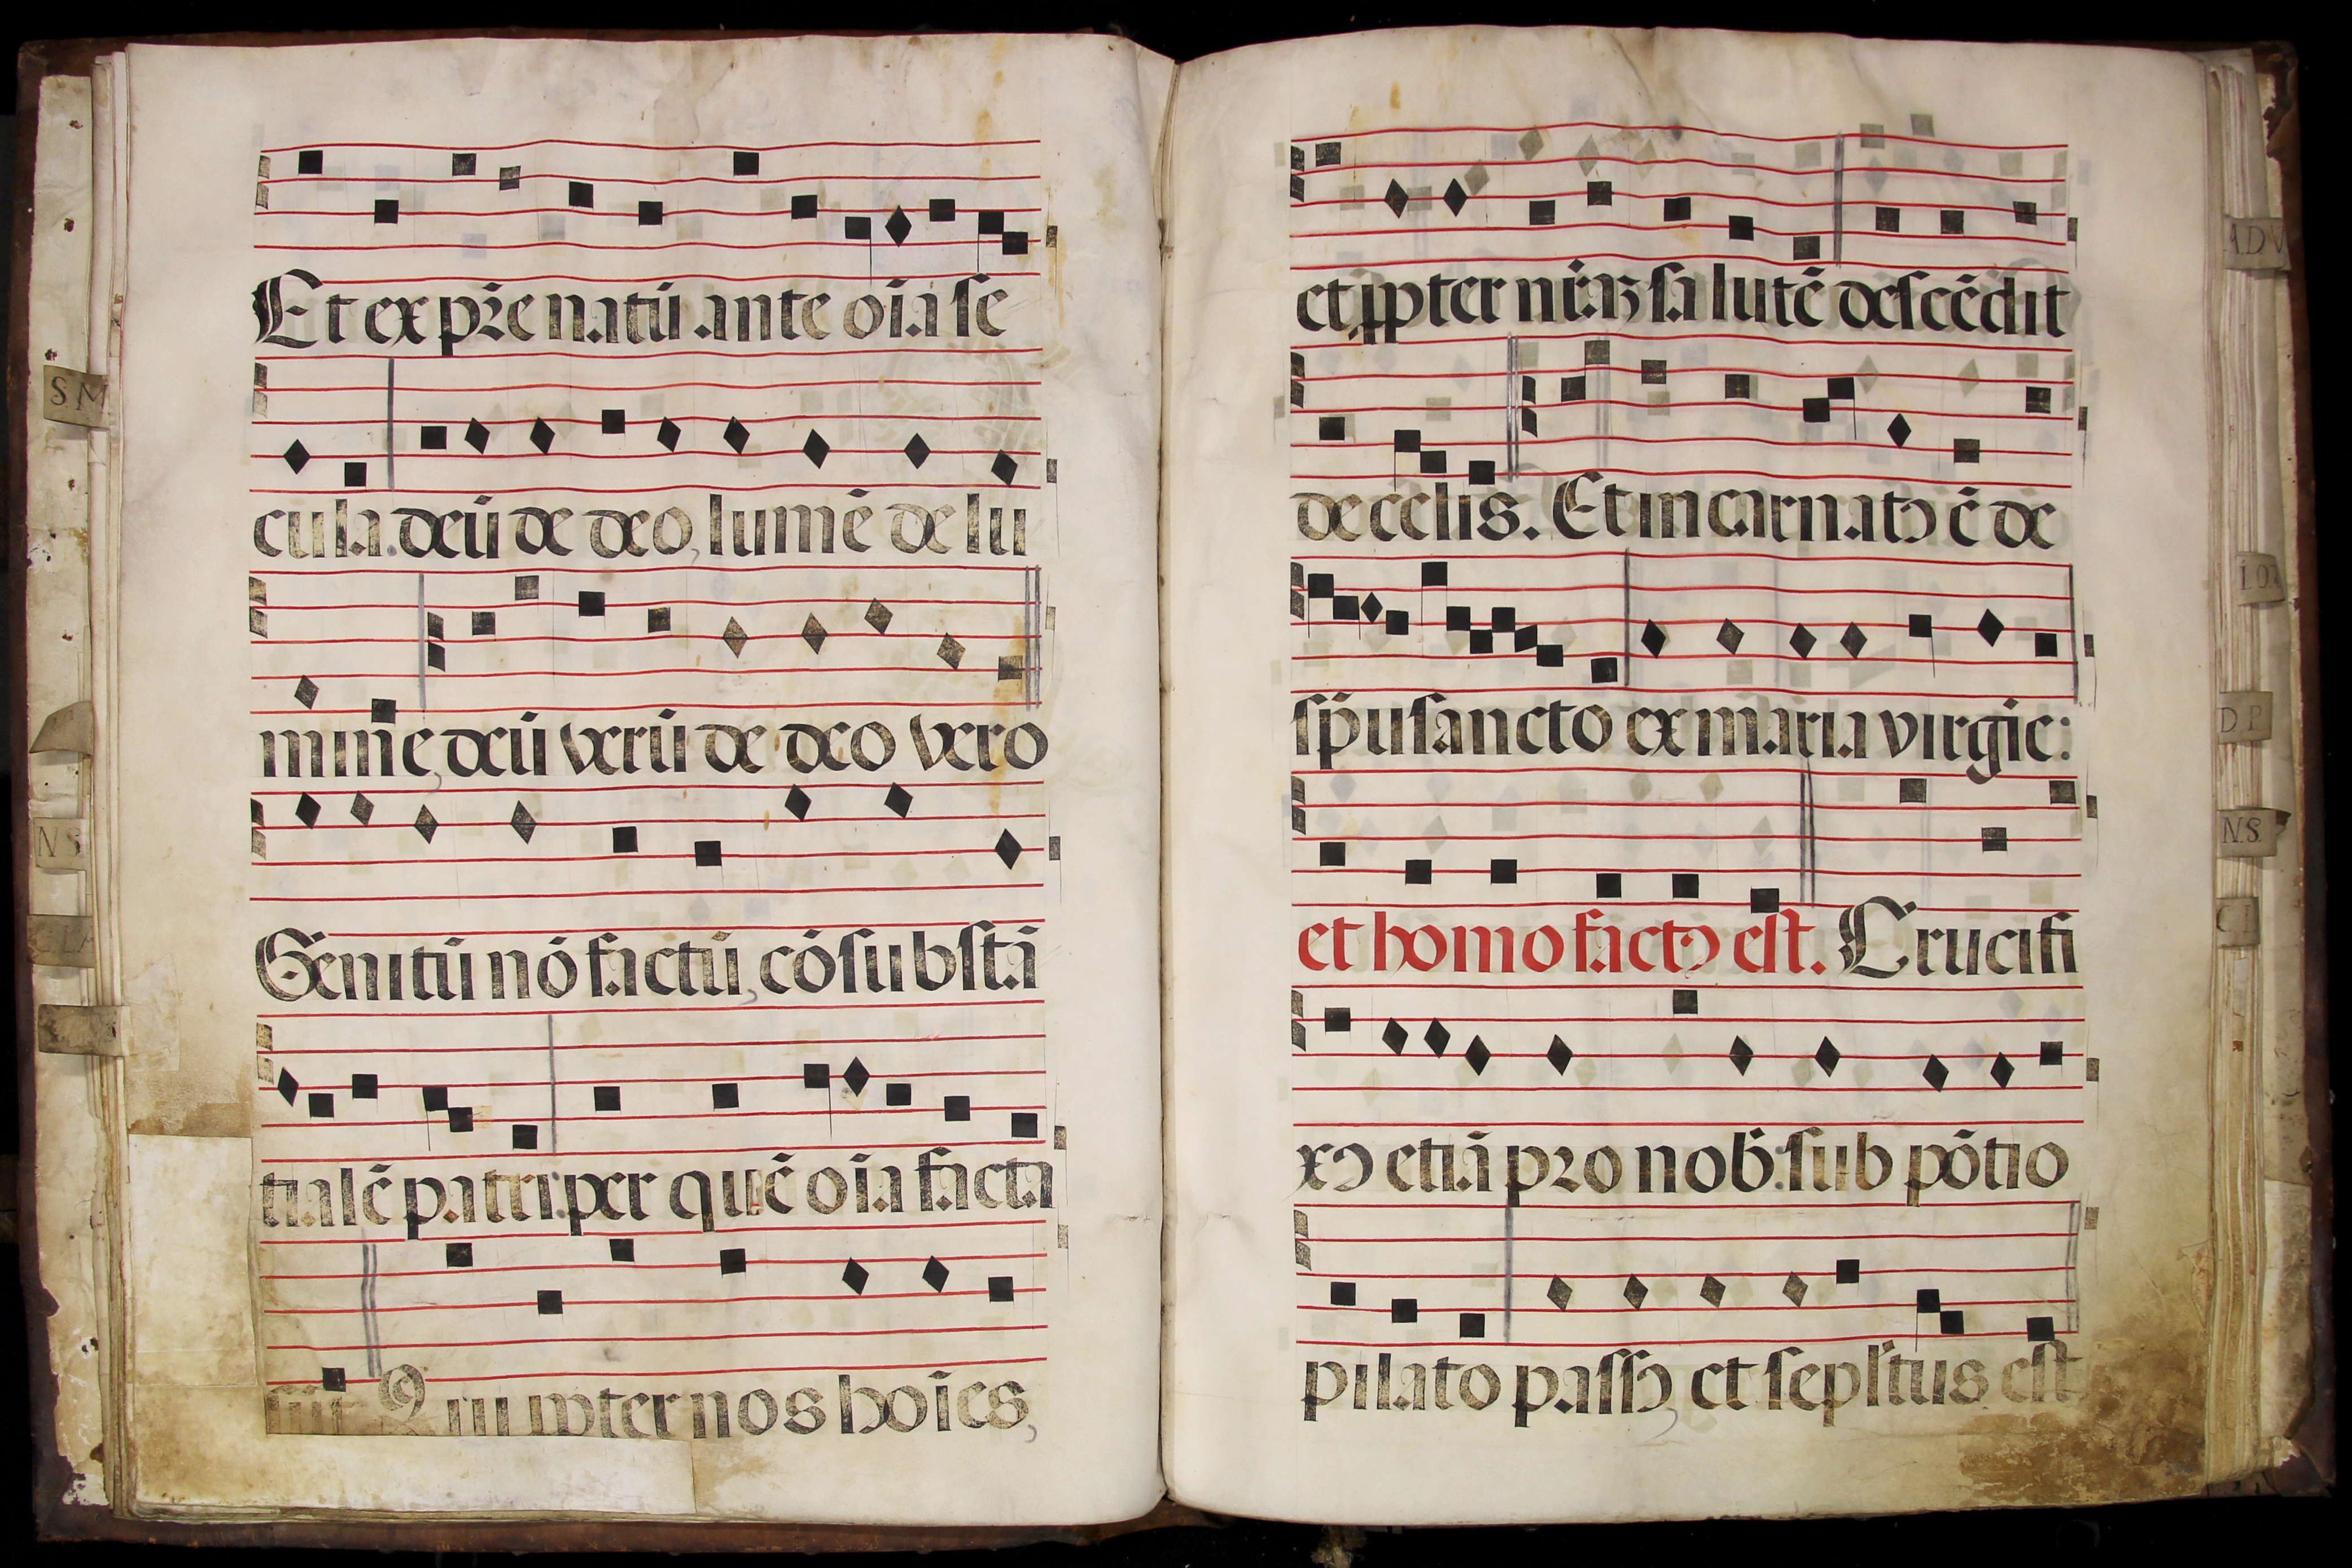 Et ex pr̄e natū ante oīa se
cula. deū de deo, lumē de lu
mine, deū verū de deo vero
Genitū nō factū, cōsubstā
tialē patri: per quē oīa facta
sūt Qui ꝓpter nos hoīes,
et ꝓpter nr̄aꝫ salutē descēdit
de celis. Et incarnatꝰ ē de
sp̄u sancto ex maria virgīe:
et homo factꝰ est. Crucifi
xꝰ etiā pro nob̄: sub pōtio
pilato passꝰ, et sepl̄tus est
S.M
N S
A.D V
D P
N.S.
C I